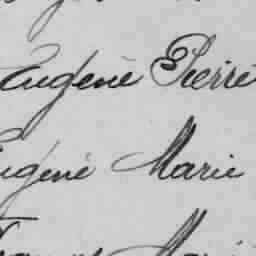 Eugène Pierre
Eugène Marie